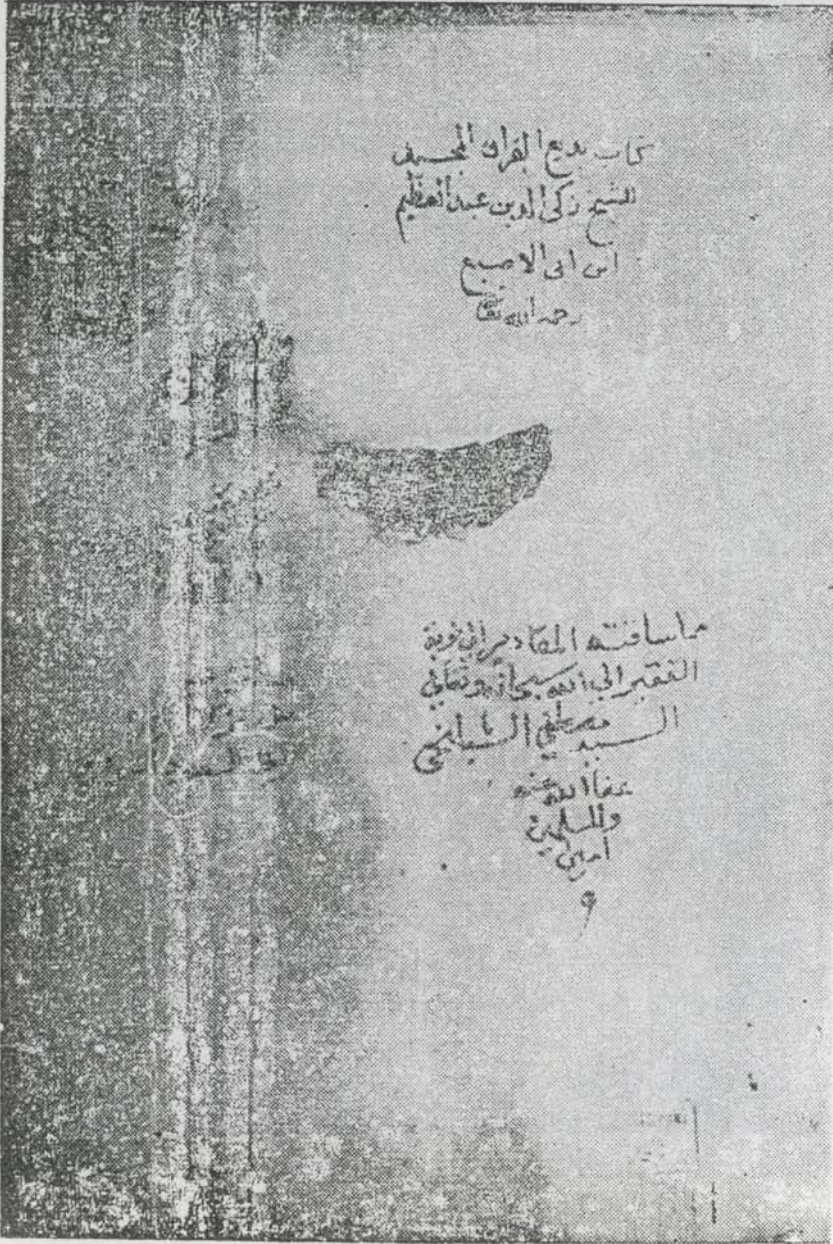 كتاب بديع القران المجيد
للشيخ زكى الدين عبد العظيم
ابن ابى الاصبع
رحمه الله تعالى
مما ساقته المقادير الى نوبة
الفقير الى الله سبحانه وتعالى
السيد مصطفى
عفا الله عنه
وللمسلمين
امين